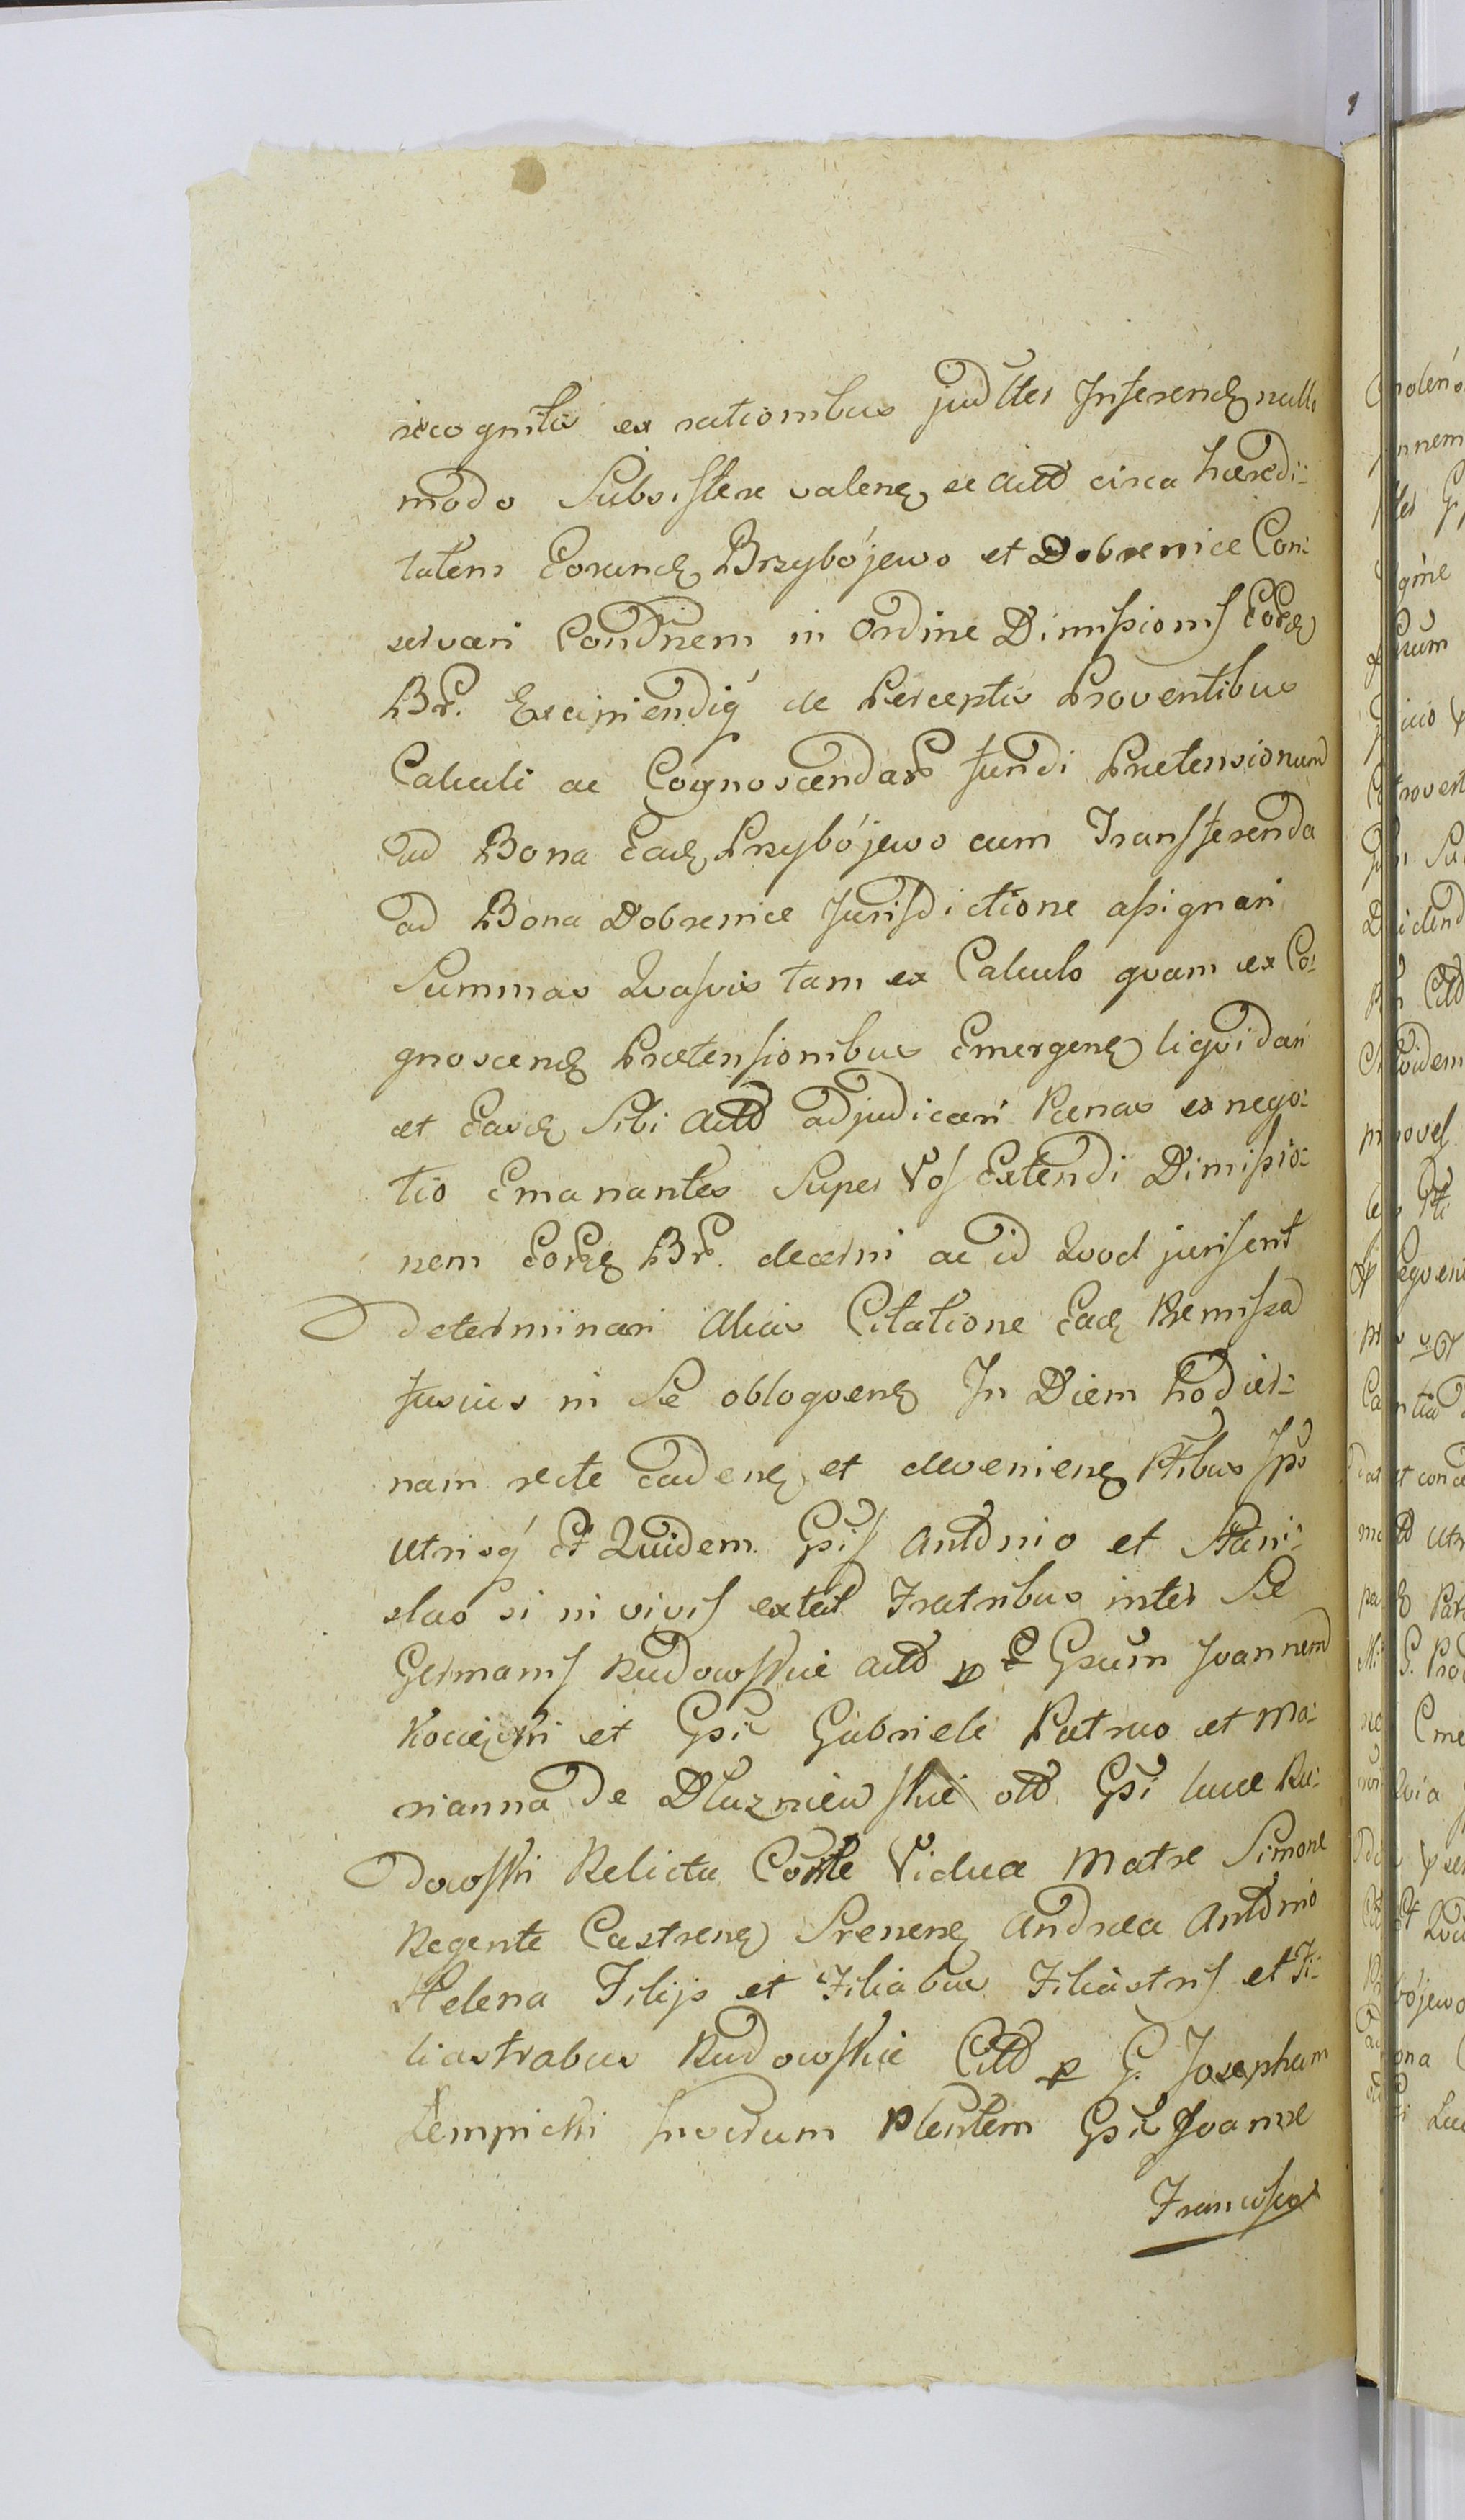 recognita ex rationibus judlter Inferend nullo
modo Subsistere valen se Actt circa haeredi:
tatem Eorund Przybójewo et Dobrenice Con:
servari Condnem in Ordine Dimissionis Eord
Br. Excipiendiq de Perceptis Proventibus
Calculi ac Cognoscendar fundi Praetensionum
ad Bona Ead Przybójewo cum Transferenda
ad Bona Dobrenice Jurisdictione assignari
Summas Quasvis tam ex Calculo quam ex Co:
gnoscend Praetensionibus Emergen liquidari
et Easd Sibi Actt adjudicari Paenas ex nego:
tio Emanantes Super Vos Extendi Dimissio:
nem Eord Br. decerni ac id Quod juris erit
determinari Alias Citatione Ead Remissa
fusius in Se obloquen In Diem hodier:
nam recte caden et devenien Ptibus Ips
utrisq Et Quidem Gsis Anttonio et Stani:
slao si in vivis extat Fratribus inter Se
Germanis Rudowskie Actt p Gsum Joannem
et Gsi Gabriele Patruo et Ma:
rianna de Dluzniewskie ott Gsi Lucae Ru:
dowski Relicta Coste Vidua Matre Simone
Regente Castren Srenen Andrea Anttonio
Helena Filijs et Filiabus Filiastris et Fi:
liastrabus Rudowskie Citt p G. Josephum
Lempicki suorum Plentem Gsi Joanne
Francisco